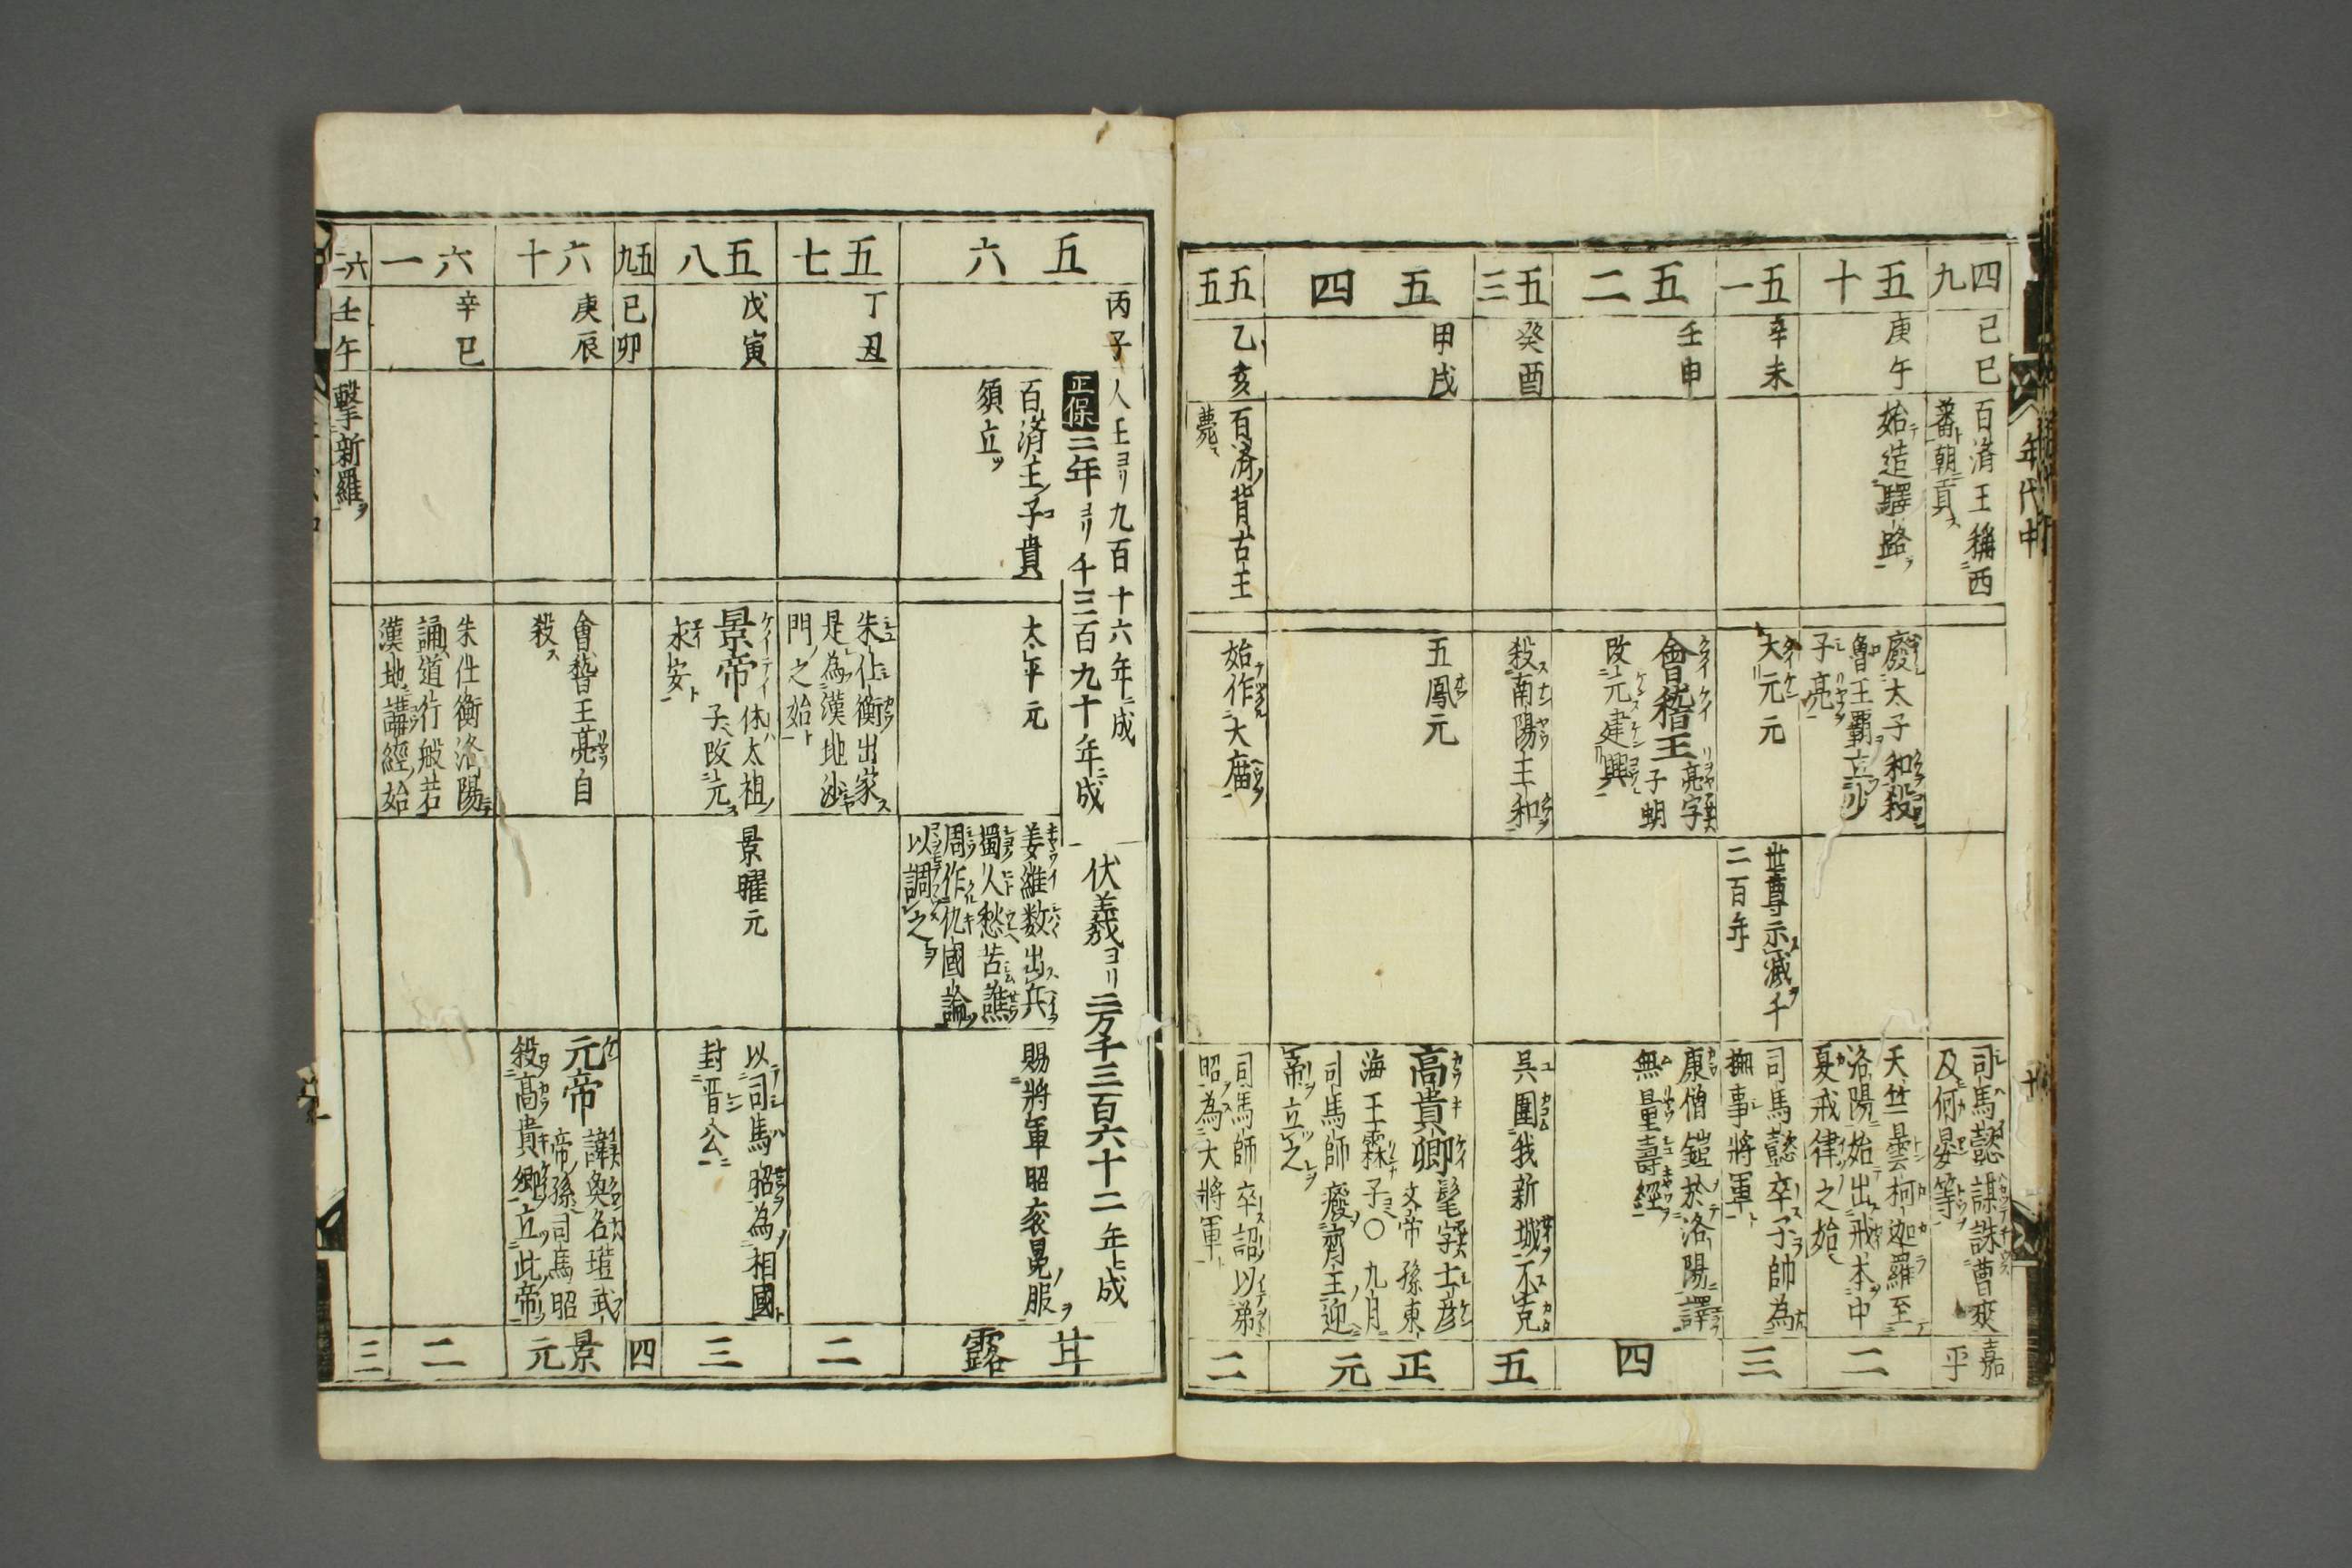 年代中
四九
己巳
百済王稱西
蕃朝貢
司馬懿謀誅曹爽
及何晏等
嘉平
五十
庚午
始造驛路
廢太子和殺
魯王覇立少
子亮
天竺曇柯迦羅至
洛陽始出戒本中
夏戒律之始
二
五一
辛未
大元元
世尊示滅千
二百年
司馬懿卒子帥為
撫事將軍
三
五二
壬申
會稽王亮字
子明
改元建興
康僧鎧於洛陽譯
無量壽經
四
五三
癸酉
殺南陽王和
吳圍我新城不克
五
五四
甲戌
五鳳元
高貴卿髦字士彦
文帝孫東
海王霖子〇九月
司馬師癈齊王迎
帝立之
正元
五五
乙亥
百済背古王
薨
始作大庿
司馬師卒詔以弟
昭為大將軍
二
五六
丙子
人王ヨリ九百十六年ニ成
正保二年ヨリ千三百九十年ニ成
伏羲ヨリ二万千三百六十二年ニ成
百済王子貴
須立
太平元
姜維数出兵
蜀人愁苦譙
周作仇國論
以調之
賜將軍昭衮冕服
甘露
五七
丁丑
朱仕衡出家
是為漢地沙
門之始
二
五八
戊寅
景帝休太祖
子改元
永安
景曜元
以司馬昭為相國
封晋公
三
五九
己卯
四
六十
庚辰
會稽王亮自
殺
元帝諱奐名璜武
帝孫司馬昭
殺高貴卿立此帝
景元
六一
辛巳
朱仕衡洛陽
誦道行般若
漢地講經始
二
六二
壬午
擊新羅
三